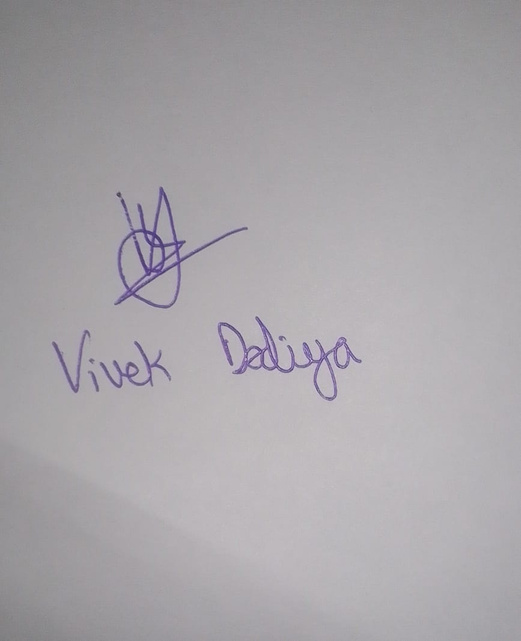 Vivek Dadiya